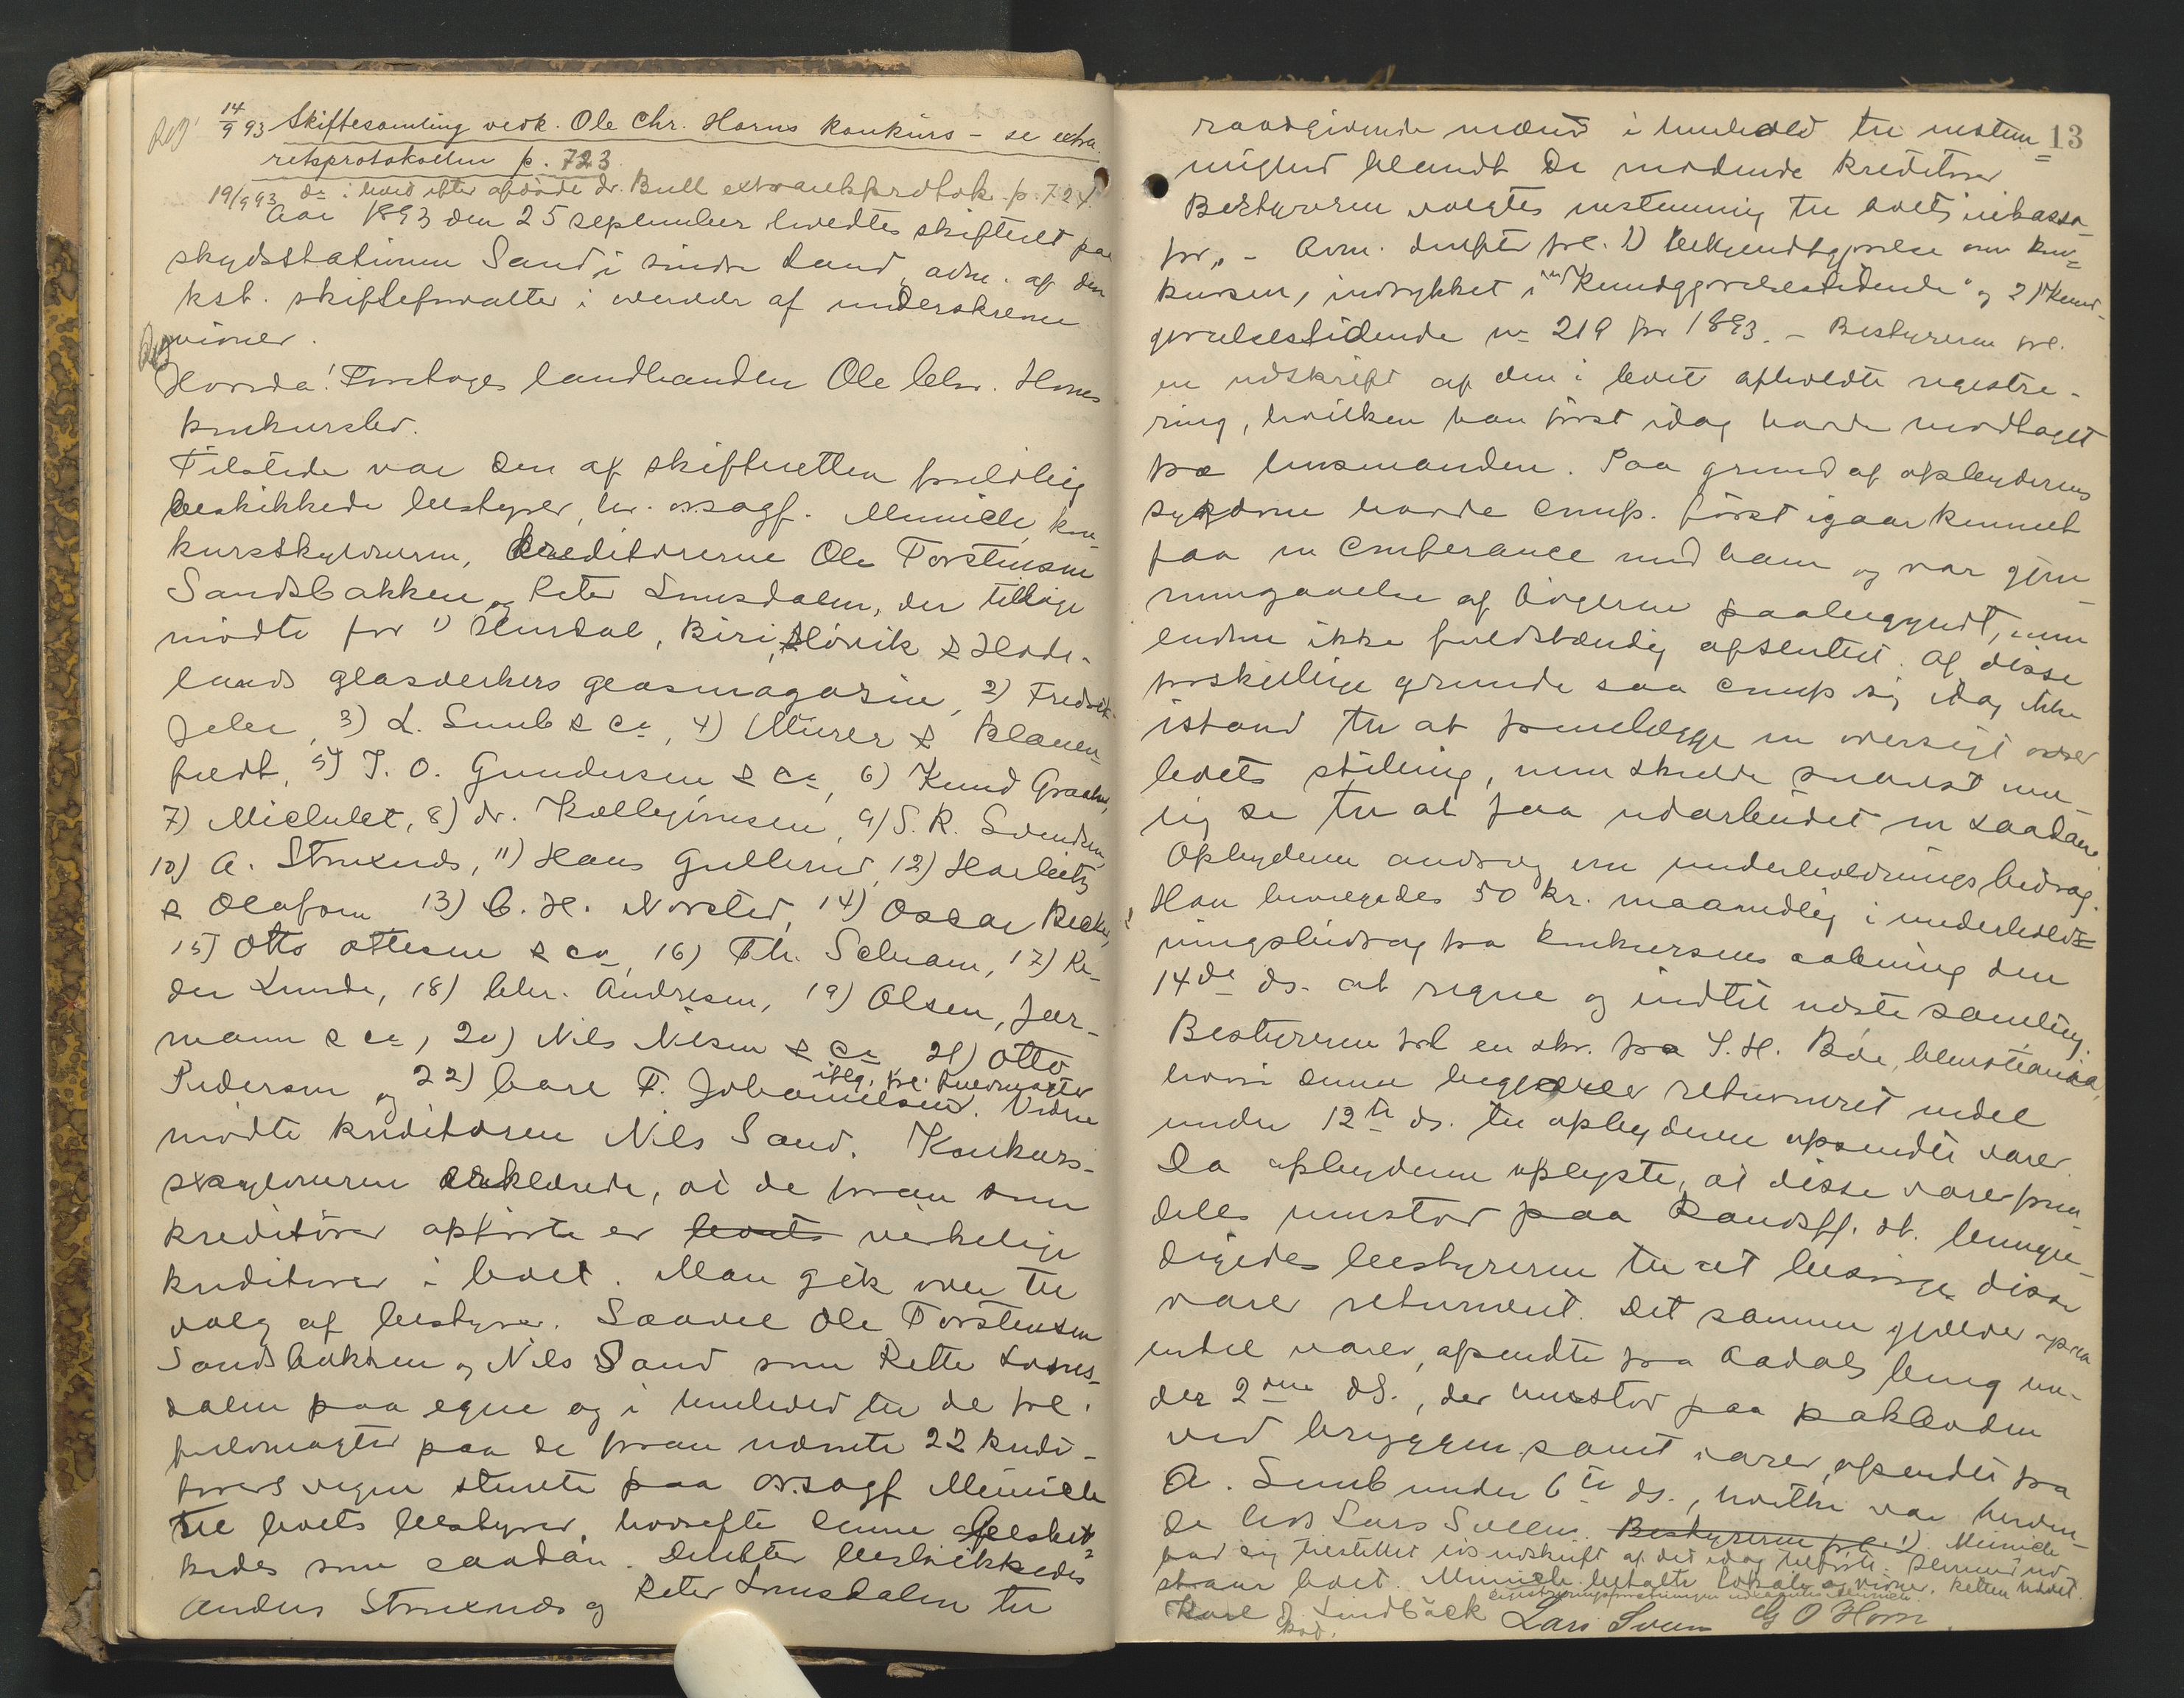 14/9 93 Skiftesamling vedk. Ole Chr. Horns konkurs – se extra-
retsprotokollen p. 723
19/9 93 do i boet efter afdøde dr. Bull extraretsprotok. p. 724
Aar 1893 den 25 september holdtes skifteret paa
skydsstationen Sand i søndre Land, adm. af den
kst. skifteforvalter i overvær af underskrevne
vidner.
Hvorda! Foretoges landhandler Ole Chr. Horns
konkursbo.
Tilstede var den af skifteretten foreløbig
beskikkede bestyrer, hr. orsagf. Minich, kon-
kursskyldneren, kreditorerne Ole Torstensen
Sandsbakken og Peter Lunsdalen, der tillige
mødte for 1) Hurdal, Biri, Høvik & Hade-
lands glasverkers glasmagasin, 2) Fredrik
3) L. Sunb & Co, 4) Mürer & Blauen-
feldt, 5) J. O. Gundersen & Co, 6) Knud Graahn,
7) Michelet, 8) dr. 9) S. R. Svendsen,
10) A. Struxnæs, 11) Hans Gullerud, 12) Harbitz
& Olafsen 13) C. H. Norsted, 14) Oscar Becke,
15) Otto Ottesen & Co, 16) Th. Schram, 17) Pe-
der Lunde, 18) Chr. Andresen, 19) Olsen, Jar-
mann & Co, 20) Nils Nilsen & Co 21) Otto
ifølg. frl. fuldmagter
Pedersen og 22) Carl F. Johannessen. Videre
mødte kreditoren Nils Sand. Konkurs-
skyldneren erklærede, at de foran som
kreditorer opførte er boets virkelige
kreditorer i boet. Man gik over til
valg af bestyrer. Saavel Ole Torstensen
Sandsbakken og Nils Sand som Petter Luns-
dalen paa egne og i henhold til de frl.
fuldmagter paa de foran nævnte 22 kredi-
torers vegne stemte paa orsagf Minich
til boets bestyrer, hvorefter denne beskik-
kedes som saadan. Derefter beskikkedes
Anders Struxnæs og Peter Lunsdalen til
13
raadgivende mænd i henhold til enstem-
mighed blandt de mødende kreditorer
Bestyreren valgtes enstemmig til boets inkassa-
tor. – Adm. derefter frl. 1) bekjendtgjørelse om kon-
kursen, indrykket i "Kundgjørelsestidende" og 2) "Kund-
gjørelsestidende no 219 for 1893. – Bestyreren frl.
en udskrift af den i boet afholdte registre-
ring, hvilken han først idag havde modtaget
fra lensmanden. Paa grund af opbyderens
sygdom havde comp. først igaar kunnet
faa en conferance med ham og var gjen-
nemgaaelse af bøgerne paabegyndt, men
endnu ikke fuldstændig afsluttet. Af disse
forskjellige grunde saa comp sig idag ikke
istand til at fremlægge en oversigt over
boets stilling, men skulde snarest mu-
lig se til at faa udarbeidet en saadan.
Opbyderen androg om underholdningsbidrag.
Han bevilgedes 50 kr. maanedlig i underhold-
ningsbidrag fra konkursens aabning den
14de ds. at regne og indtil næste samling.
Bestyreren frl en skr. fra S. H. Bøe, Christiania,
hvori denne begjærer returneret endel
under 12te ds. til opbyderen afsendte varer.
Da opbyderen oplyste, at disse varer frem-
deles henstod paa Randsfj. st. bemyn-
digedes bestyreren til at besørge disse
varer returneret. Det samme gjælder ogsaa
endel varer, afsendte fra Aadals brug un-
der 2den ds., der henstod paa pakboden
ved bryggen samt varer, afsendte fra
A. Sunb under 6te ds., hvilke var henlig-
de hos Lars Sveen. Bestyreren frl. 1) Minich
bad sig tilstillet løs udskrift af det idag tilførte. Hermed ud-
staar boet. Minich betalte lokale og vidner. Retten hævet.
Karl J. Lindbäck Lars Sveen G O Horn
kst.